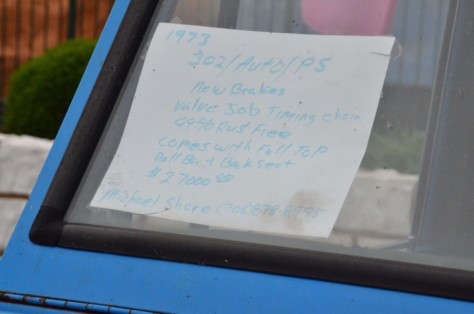 1973
302/Auto/PS
New Brakes
Valve Job Timing chain
99% Rust Free
Comes with Full Top
Roll Bar & Back seat
$ 27000 00
Michael Shore